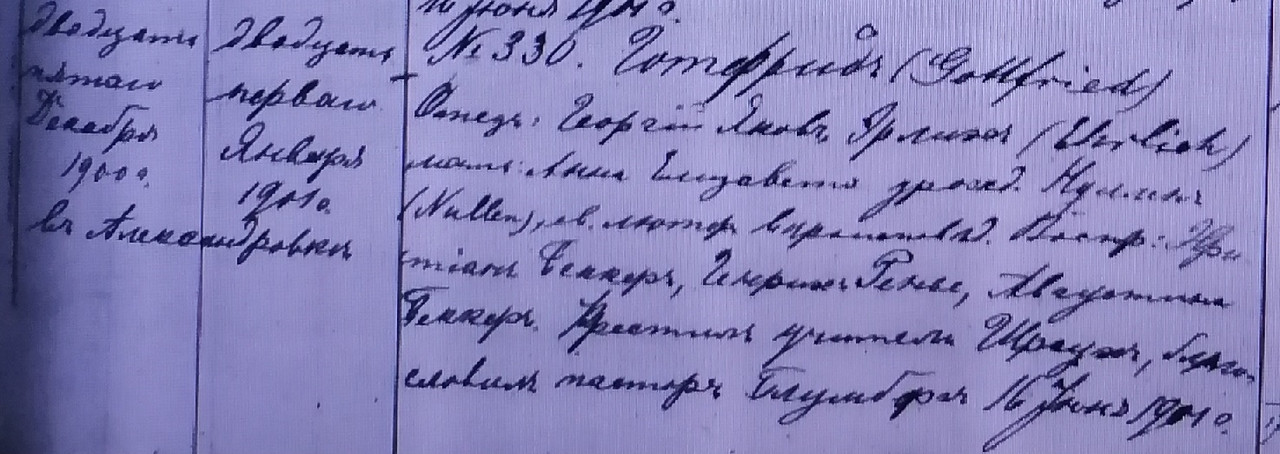 16 Июня 1901 г.
двадцать
пятаго
Декабря
1900 г.
въ Александровкѣ
двадцать
перваго
Января
1901 г.
№ 330. Готфридъ (Gottfried)
Отецъ: Георгій Яковъ Эрлихъ (Ehrlich)
мать: Анна Елизавета урожд. Нулленъ
(Nullen), ев. лютер. вѣроисповѣд. Воспр: Хри
стіанъ Беккеръ, Генрихъ Генье, Августина
Беккеръ. Крестилъ учитель Шрауэ, благо-
словилъ пасторъ Блумбергъ 16 Іюня 1901 г.